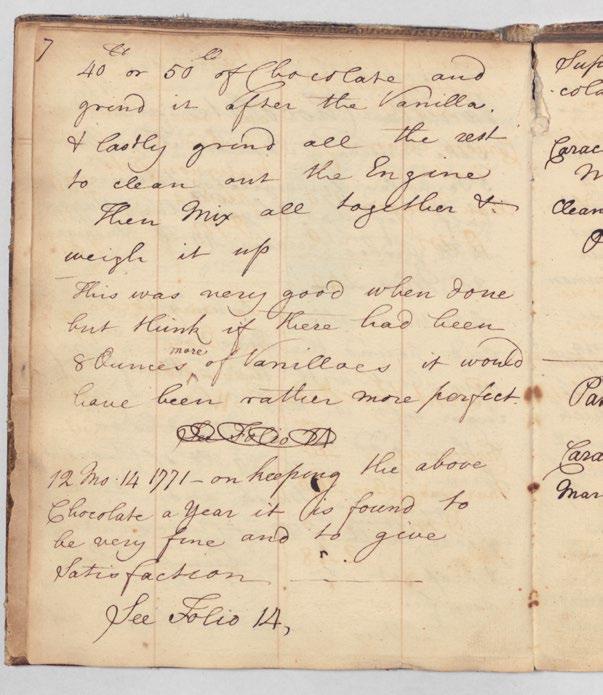 7
40 lb or 50 lb of Chocolate and
grind it after the Vanilla.
& lastly grind all the rest
to clean out the Engine
Then Mix all together &
weigh it up
This was very good when done
but think if there had been
8 Ounces more of Vanilloes it would
have been rather more perfect.
See Folio 14
12 Mo. 14 1771 – on keeping the above
Chocolate a Year it is found to
be very fine and to give
Satisfaction
See Folio 14,
Sup
cola
Carac
M
Clean
Par
Cara
Mar